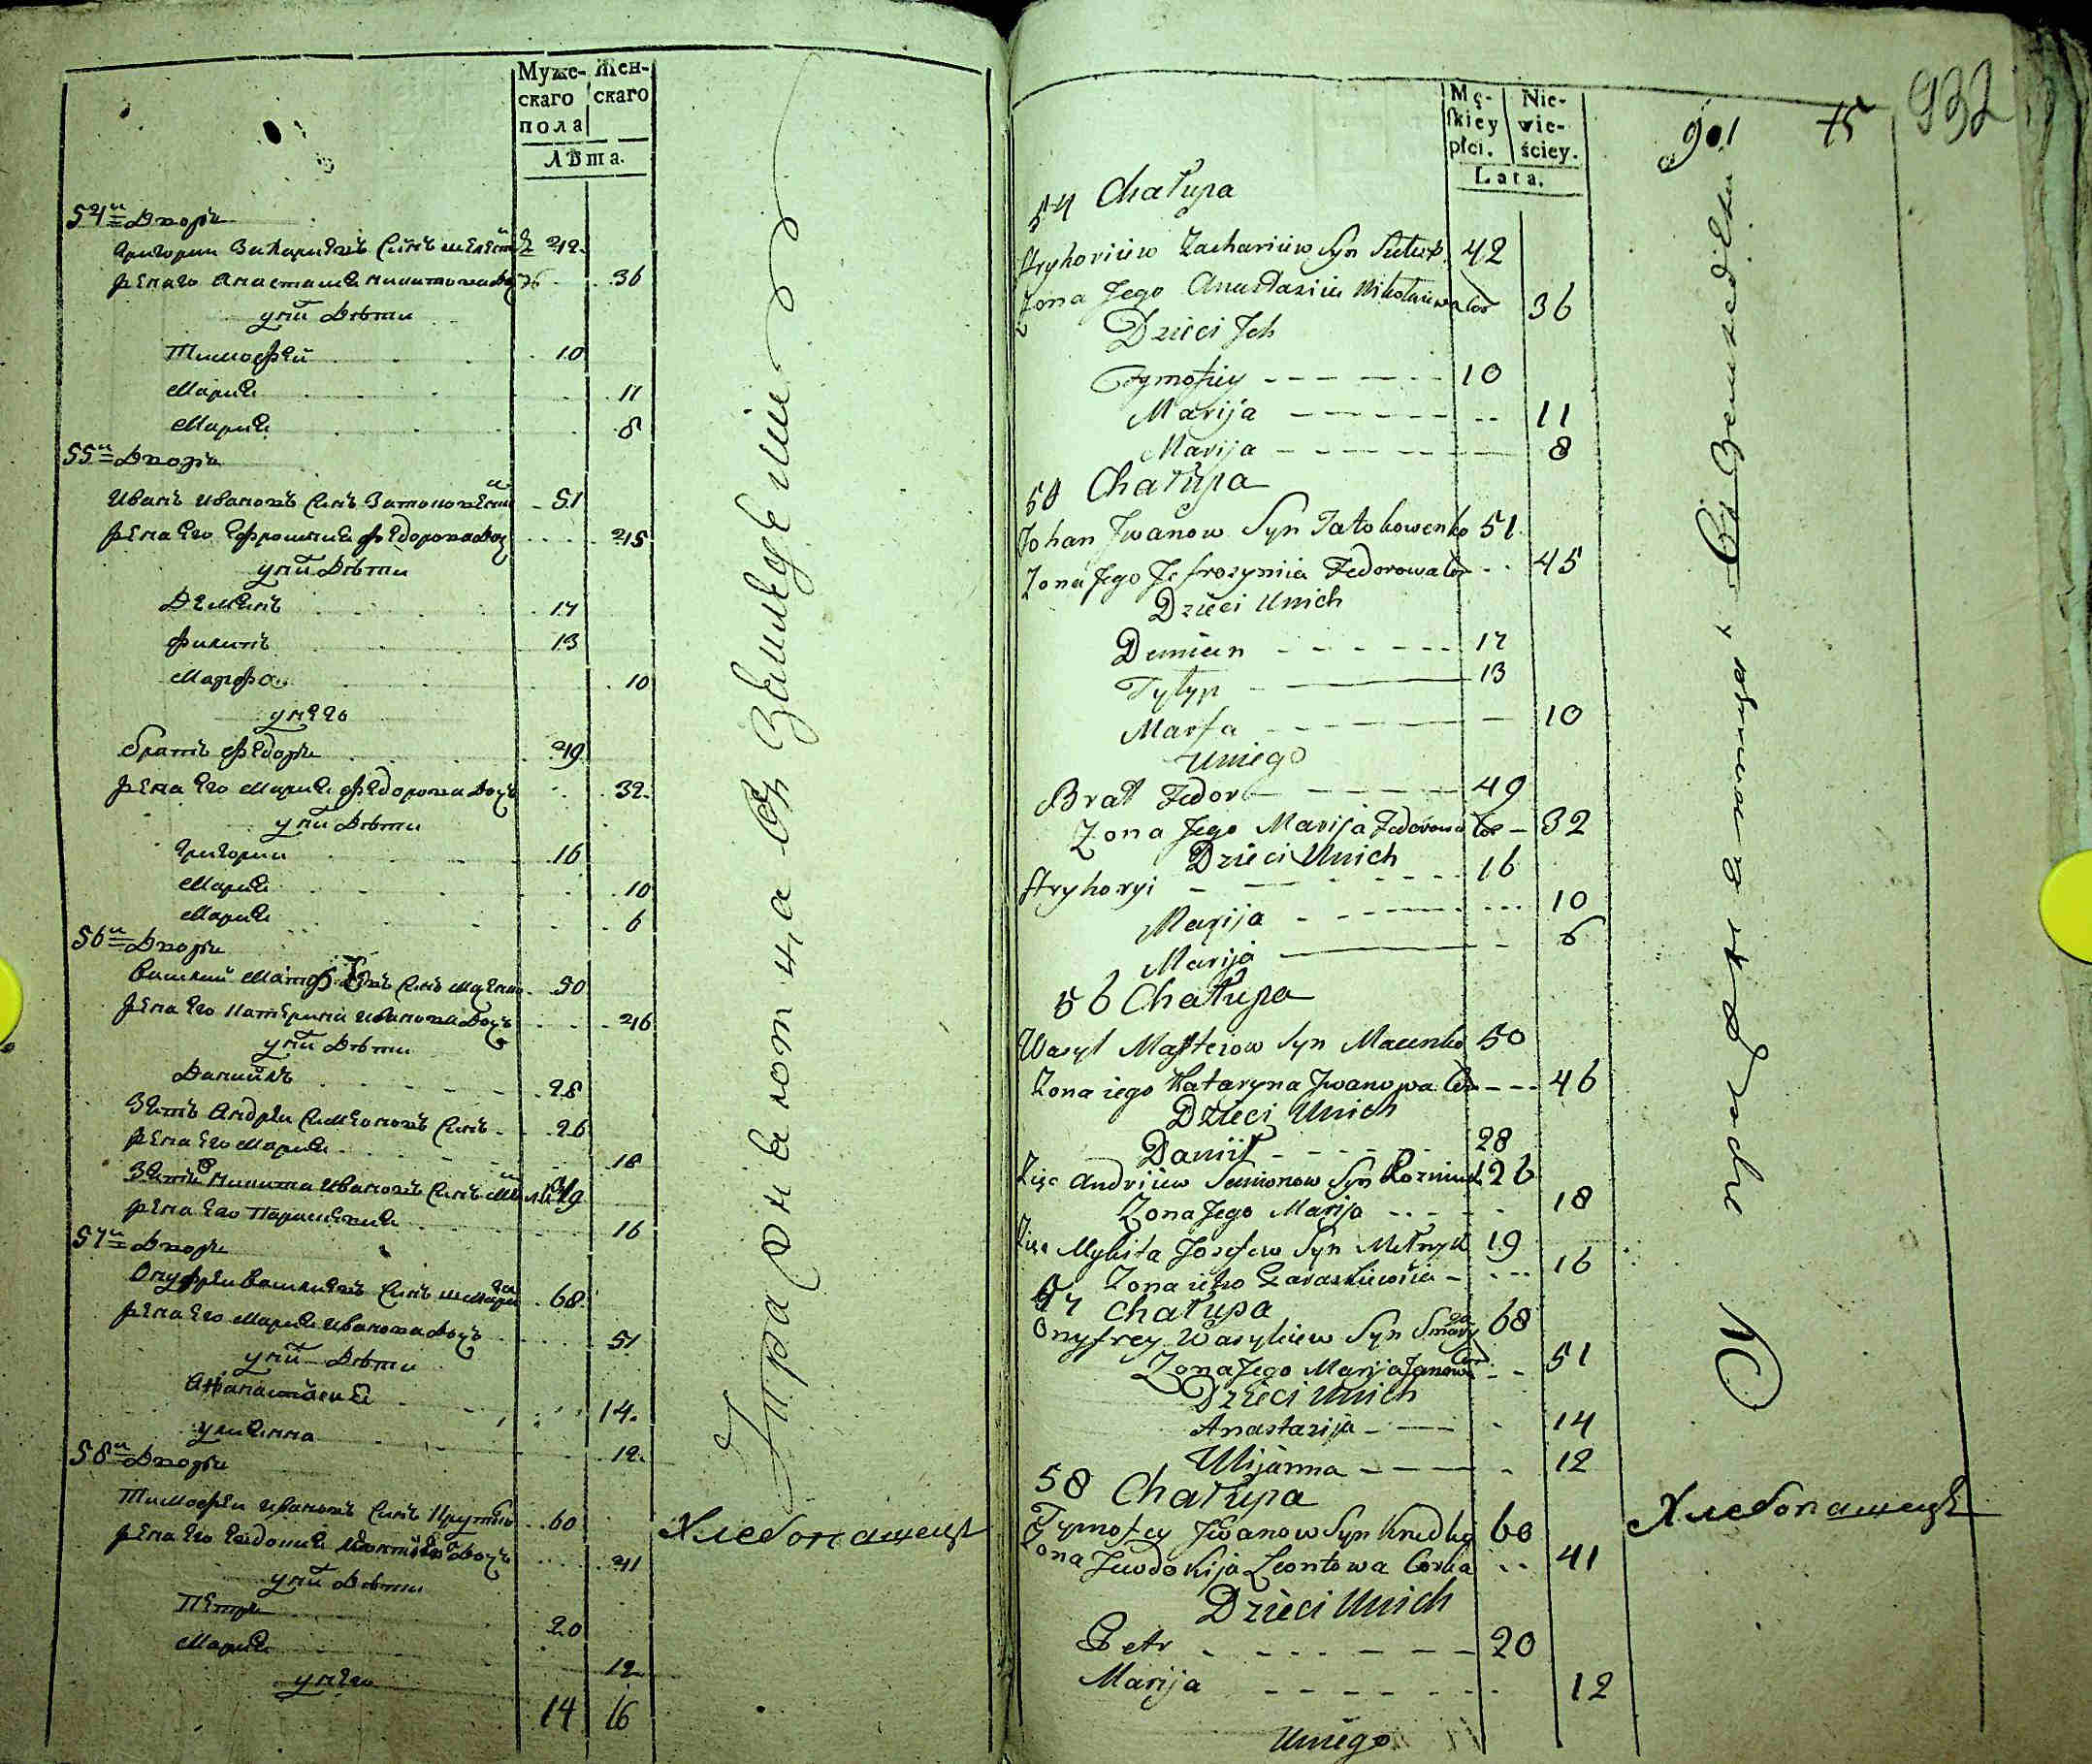 Муже- Жен-
скаго скаго
пола
Лѣта.
54й Дворъ
Григории Захариевъ Синъ 42
Жена его Анастасия Дочь 36
у них Дѣти
Тимофей 10
Мария 11
Мария 8
55й Дворъ
Иванъ Ивановъ Синъ 51
Жена его Ефросиния Федорова Дочь 45
у них Дѣти
Демянъ 17
Филипъ 13
Марфа 10
у него
братъ Федоръ 49
Жена его Мария Федорова Дочь 32
у них Дѣти
Григории 16
Мария 10
Мария 6
56й Дворъ
Василий Синъ Маценко 50
Жена его Катерина Иванова Дочь 46
у них Дѣти
Даниилъ 28
Зять Андреи Симеоновъ Синъ 26
Жена его Мария 18
Зять Никита Ивановъ Синъ 19
Жена его Параскевия 16
57й Дворъ
Онуфреи Василиевъ Синъ 68
Жена его Мария Иванова Дочь 51
у них Дѣти
Анастасия 14
Улиянна 12
58й Дворъ
Тимофеи Ивановъ Синъ 60
Жена его Евдокия Дочь 41
у них Дѣти
Петръ 20
Мария 12
у него
14 16
въ Земледелии
Хлебопашецъ
Mę- Nie-
skiey wie-
płci. ściey.
Lata.
901 75 932
54 Chałupa
Hryhoriiew Zachariiew Syn 42
Zona Jego Anastaziia Mikołaiewa Cor 36
Dzieci Jch
Tymofiey 10
Marija 11
Marija 8
55 Chałupa
Johan Jwanow Syn 51
Zona Jego Jefrozyniia Fedorowa Cor 45
Dzieci Unich
Demian 17
Fyłyp 13
Marfa 10
Uniego
Brat Fedor 49
Zona Jego Marija Fedorowa Cor 32
Dzieci Unich
Hryhoryi 16
Marija 10
Marija 6
56 Chałupa
Wasyl Matteiow Syn Macenko 50
Zona iego Kataryna Jwanowa Cor 46
Dzieci Unich
Daniił 28
Zięc Andriiew Semionow Syn 26
Zona Jego Marija 18
Zięc Mykita Jozefew Syn Mełnyk 19
Zona 16
57 Chałupa
Onyfrey Wasyluew Syn 68
Zona Jego Marija Janowa Cor 51
Dzieci Unich
Anastazija 14
Ulijanna 12
58 Chałupa
Tymofey Jwanow Syn 60
Zona Jewdokija Leontowa Corka 41
Dzieci Unich
Petr 20
Marija 12
Uniego
Хлебопашецъ